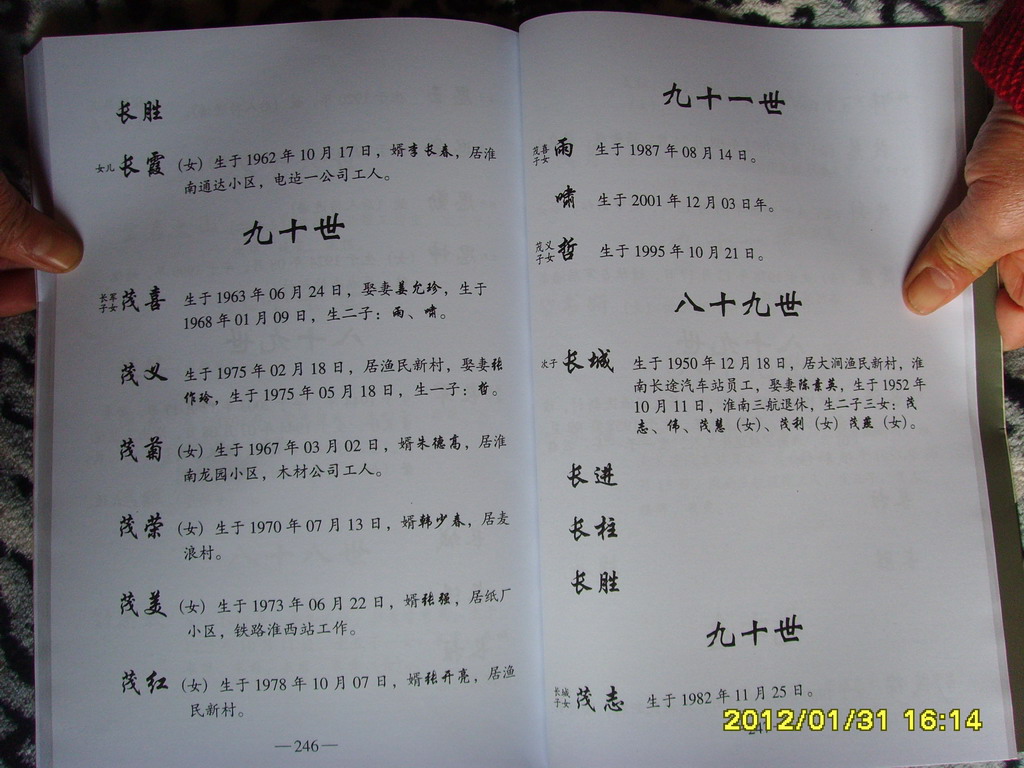 长胜
女儿 长霞 (女) 生于 1962 年 10 月 17 日，婿李长春，居淮
南通达小区，电造一公司工人。
九十世
长军子女 茂喜 生于 1963 年 06 月 24 日，娶妻姜允珍，生于
1968 年 01 月 09 日，生二子：雨、啸。
茂义 生于 1975 年 02 月 18 日，居渔民新村，娶妻张
作玲，生于 1975 年 05 月 18 日，生一子：哲。
茂菊 (女) 生于 1967 年 03 月 02 日，婿朱德高，居淮
南龙园小区，木材公司工人。
茂荣 (女) 生于 1970 年 07 月 13 日，婿韩少春，居麦
浪村。
茂美 (女) 生于 1973 年 06 月 22 日，婿张强，居纸厂
小区，铁路淮西站工作。
茂红 (女) 生于 1978 年 10 月 07 日，婿张开亮，居渔
民新村。
—246—
九十一世
茂喜子女 雨 生于 1987 年 08 月 14 日。
啸 生于 2001 年 12 月 03 日年。
茂义子女 哲 生于 1995 年 10 月 21 日。
八十九世
次子 长城 生于 1950 年 12 月 18 日，居大涧渔民新村，淮
南长途汽车站员工，娶妻陈素英，生于 1952 年
10 月 11 日，淮南三航退休，生二子三女：茂
志、伟、茂慧 (女)、茂利 (女) 茂燕 (女)。
长进
长柱
长胜
九十世
长城子女 茂志 生于 1982 年 11 月 25 日。
2012/01/31 16:14